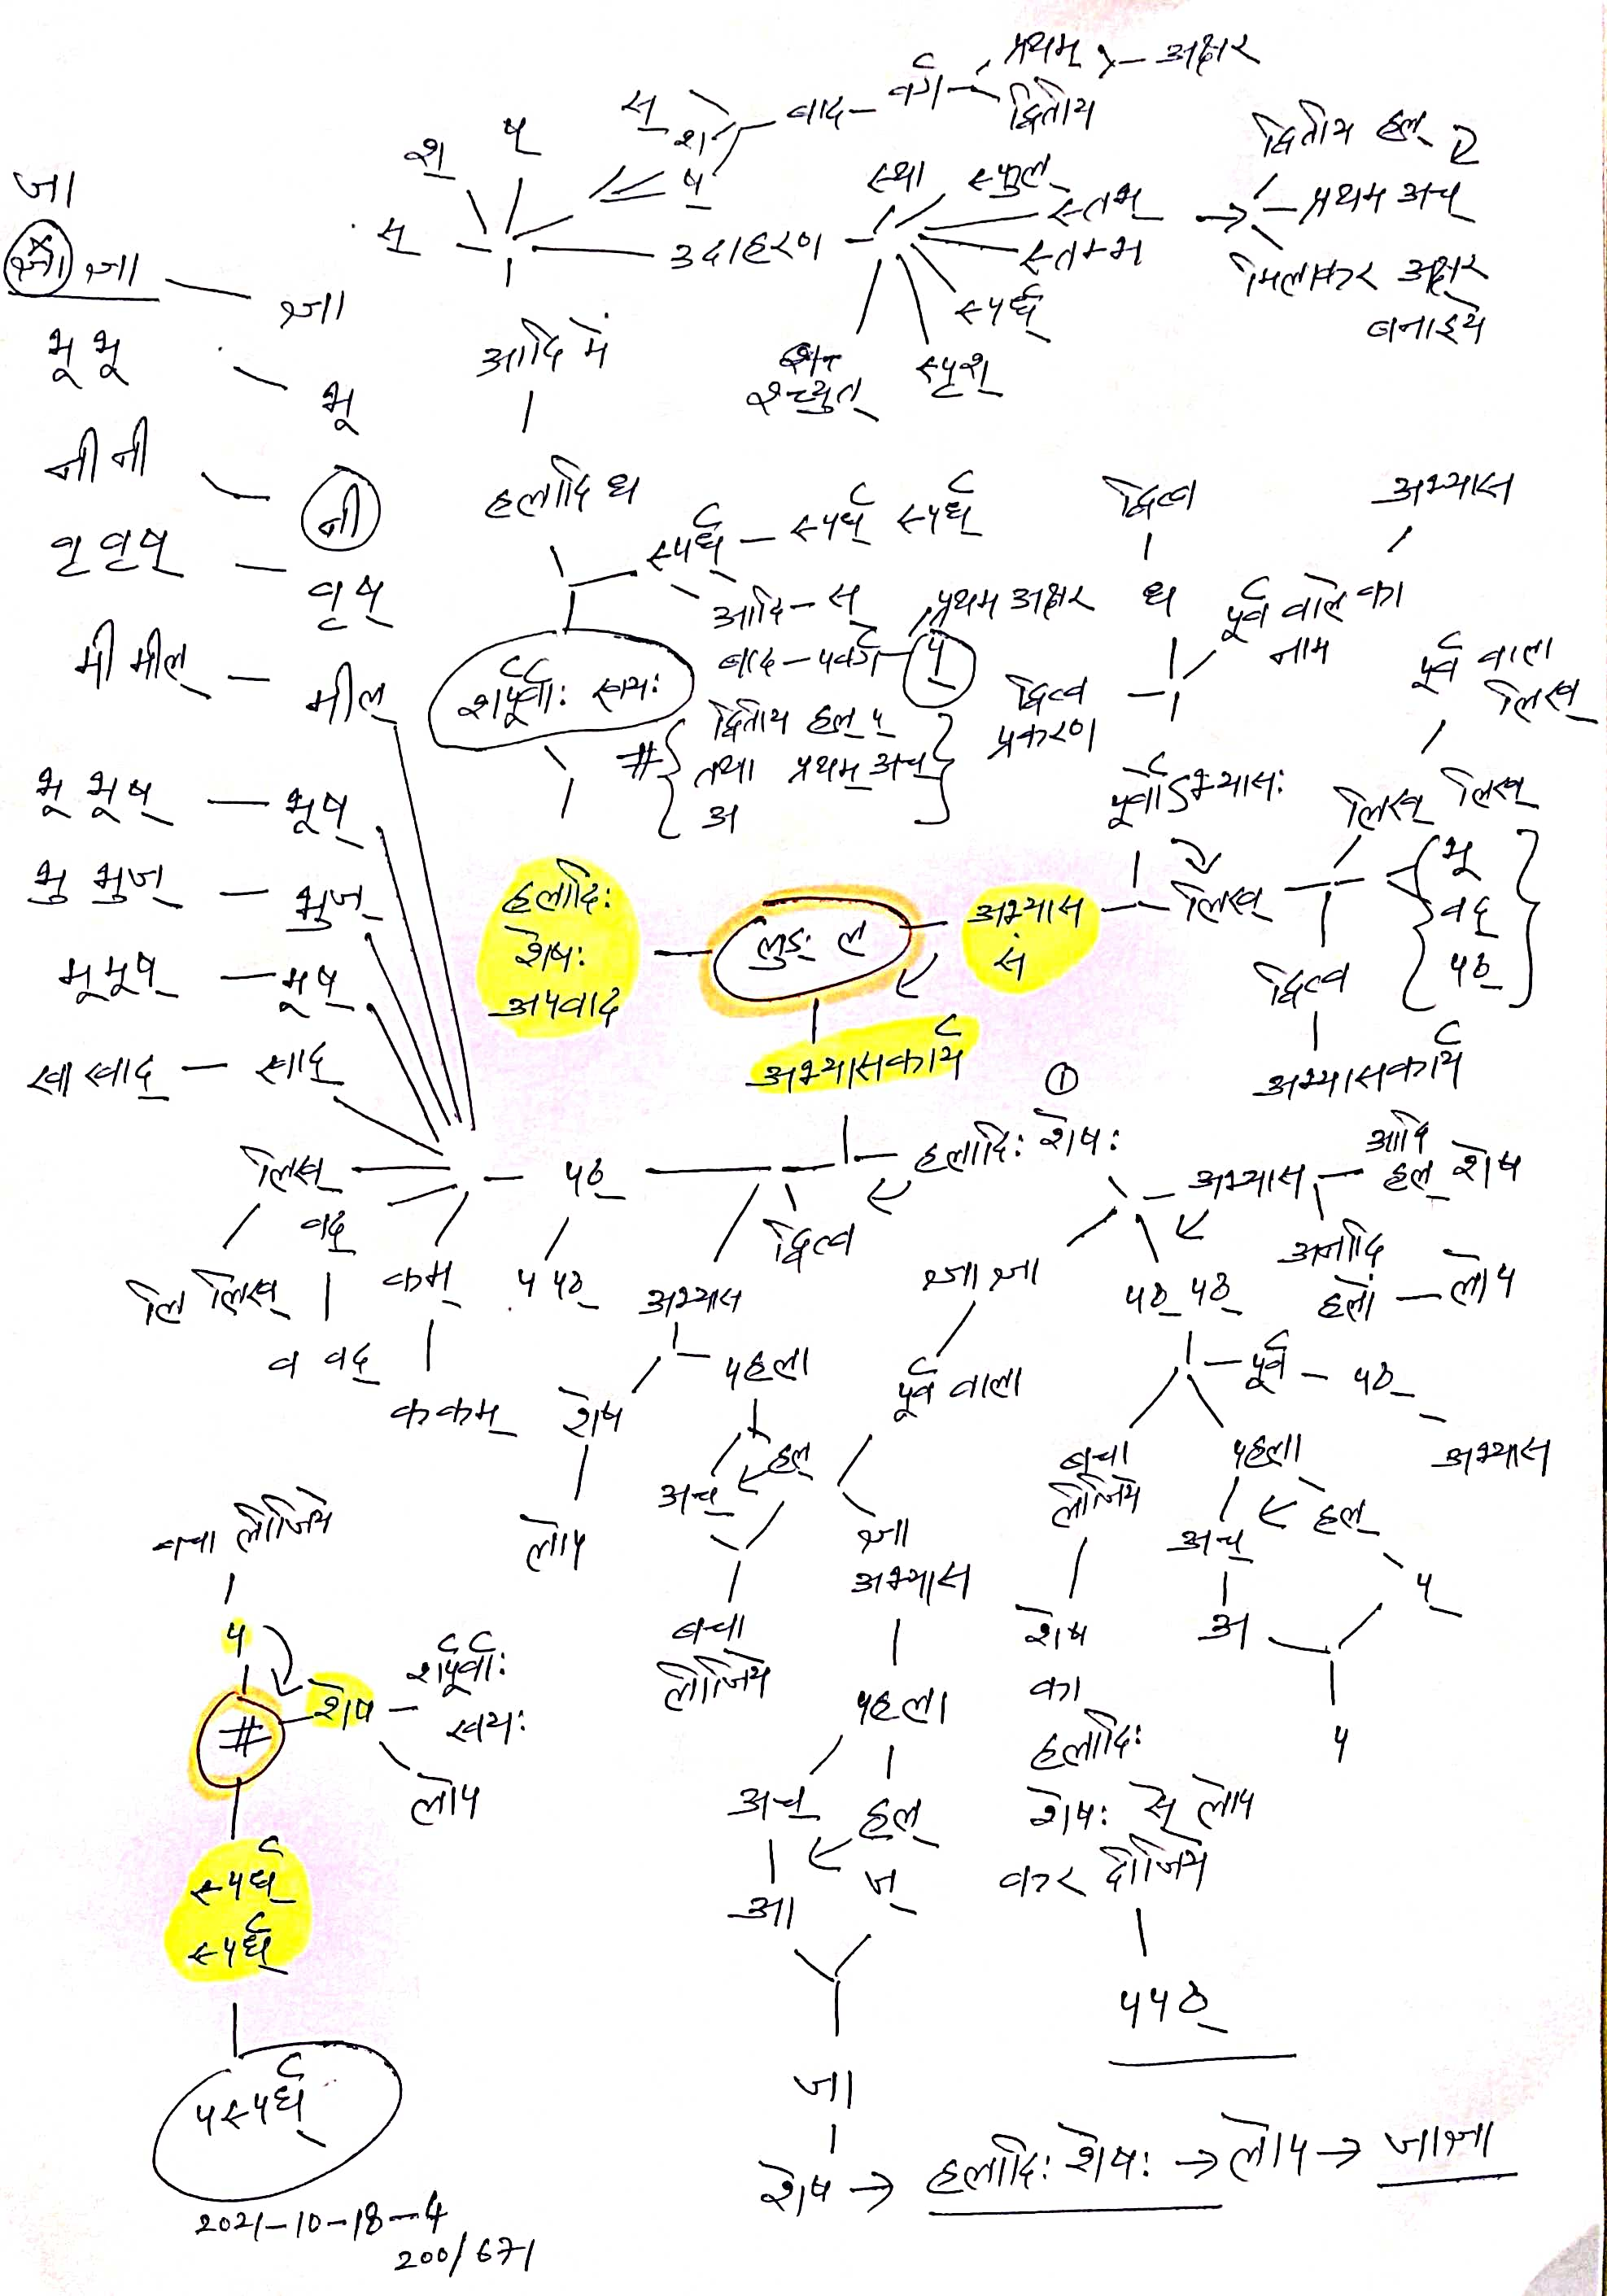 प्रथम - अक्षर
स् श् ष् - बाद - वर्ग
द्वितीय
श् ष्
स्
उदाहरण
स्था स्फुल् स्तभ्
स्तम्भ
स्पर्ध्
स्पृश्
श्च्युत्
द्वितीय हल्
प्रथम अच्
मिलाकर अक्षर
बनाइये
आदि में
हलादि धा
जा
ज्ञा - ज्ञा
भू भू - भू
नी नी - नी
वृ वृष् - वृष्
मी मील् - मील्
भू भूष् - भूष्
भु भुज् - भुज्
मू मूष् - मूष्
खा खाद् - खाद्
स्पर्ध् - स्पर्ध् स्पर्ध्
आदि - स्
प्रथम अक्षर
बाद - पवर्ग - प्
शर्पूर्वाः खयः
# द्वितीय हल् प्
तथा प्रथम अच्
अ
द्वित्व
अभ्यास
पूर्व वाले का
नाम
द्वित्व
प्रकरण
पूर्व वाला
लिख्
पूर्वोऽभ्यासः
लिख् लिख्
लिख्
भू
वद्
पठ्
द्वित्व
अभ्यासकार्य
हलादिः
शेषः
अपवाद
लुङ् ल
अभ्यास
सं
अभ्यासकार्य
①
हलादिः शेषः
अभ्यास
आदि
हल् शेष
अनादि
हलों - लोप
लिख् - पठ्
द्वित्व
वद्
लि लिख्
व वद्
कम्
क कम्
प पठ्
अभ्यास
पहला
शेष
लोप
हल्
अच्
बचा
लीजिये
ज्ञा ज्ञा
पूर्व वाला
ज्ञा
अभ्यास
पहला
अच् हल्
आ ज्
जा
शेष → हलादिः शेषः → लोप → जाज्ञा
पठ् पठ्
पूर्व - पठ्
अभ्यास
बचा
लीजिये
पहला
हल्
अच्
अ प्
प
शेष
का
हलादिः
शेषः से लोप
कर दीजिये
पपठ्
बचा लीजिये
प
# - शेष - शर्पूर्वाः
खयः
लोप
स्पर्ध्
स्पर्ध्
पस्पर्ध्
2021-10-18-4
200/671